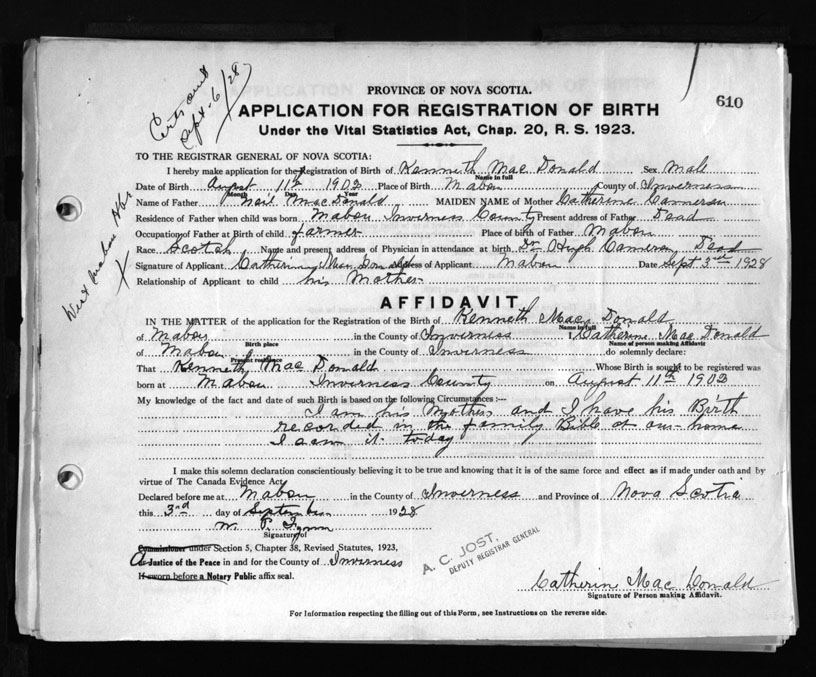 Certs out
Sept. 6/28
West Mabou Hbr
X
610
PROVINCE OF NOVA SCOTIA.
APPLICATION FOR REGISTRATION OF BIRTH
Under the Vital Statistics Act, Chap. 20, R. S. 1923.
TO THE REGISTRAR GENERAL OF NOVA SCOTIA:
I hereby make application for the Registration of Birth of Kenneth Mac Donald Sex Male
Name in full
Date of Birth August 11th 1902 Place of Birth Mabou County of Inverness
Month Day Year
Name of Father Neil MacDonald MAIDEN NAME of Mother Catherine Cameron
Residence of Father when child was born Mabou Inverness County Present address of Father Dead
Occupation of Father at Birth of child farmer Place of birth of Father Mabou
Race Scotch Name and present address of Physician in attendance at birth Dr Hugh Cameron Dead
Signature of Applicant Catherine Mac Donald Address of Applicant Mabou Date Sept 3rd 1928
Relationship of Applicant to child his Mother
AFFIDAVIT
IN THE MATTER of the application for the Registration of the Birth of Kenneth Mac Donald
Name in full
of Mabou in the County of Inverness I, Catherine Mac Donald
Birth place Name of person making Affidavit
of Mabou in the County of Inverness do solemnly declare:
Present residence
That Kenneth Mac Donald Whose Birth is sought to be registered was
born at Mabou Inverness County on August 11th 1902
My knowledge of the fact and date of such Birth is based on the following Circumstances :—
I am his Mother and I have his Birth
recorded in the family Bible at our home
I saw it today
I make this solemn declaration conscientiously believing it to be true and knowing that it is of the same force and effect as if made under oath and by
virtue of The Canada Evidence Act.
Declared before me at Mabou in the County of Inverness and Province of Nova Scotia
this 3rd day of September 1928
W. P.
Signature of
Commissioner under Section 5, Chapter 38, Revised Statutes, 1923,
A Justice of the Peace in and for the County of Inverness
If sworn before a Notary Public affix seal.
A. C. JOST,
DEPUTY REGISTRAR GENERAL
Catherine Mac Donald
Signature of Person making Affidavit.
For Information respecting the filling out of this Form, see Instructions on the reverse side.